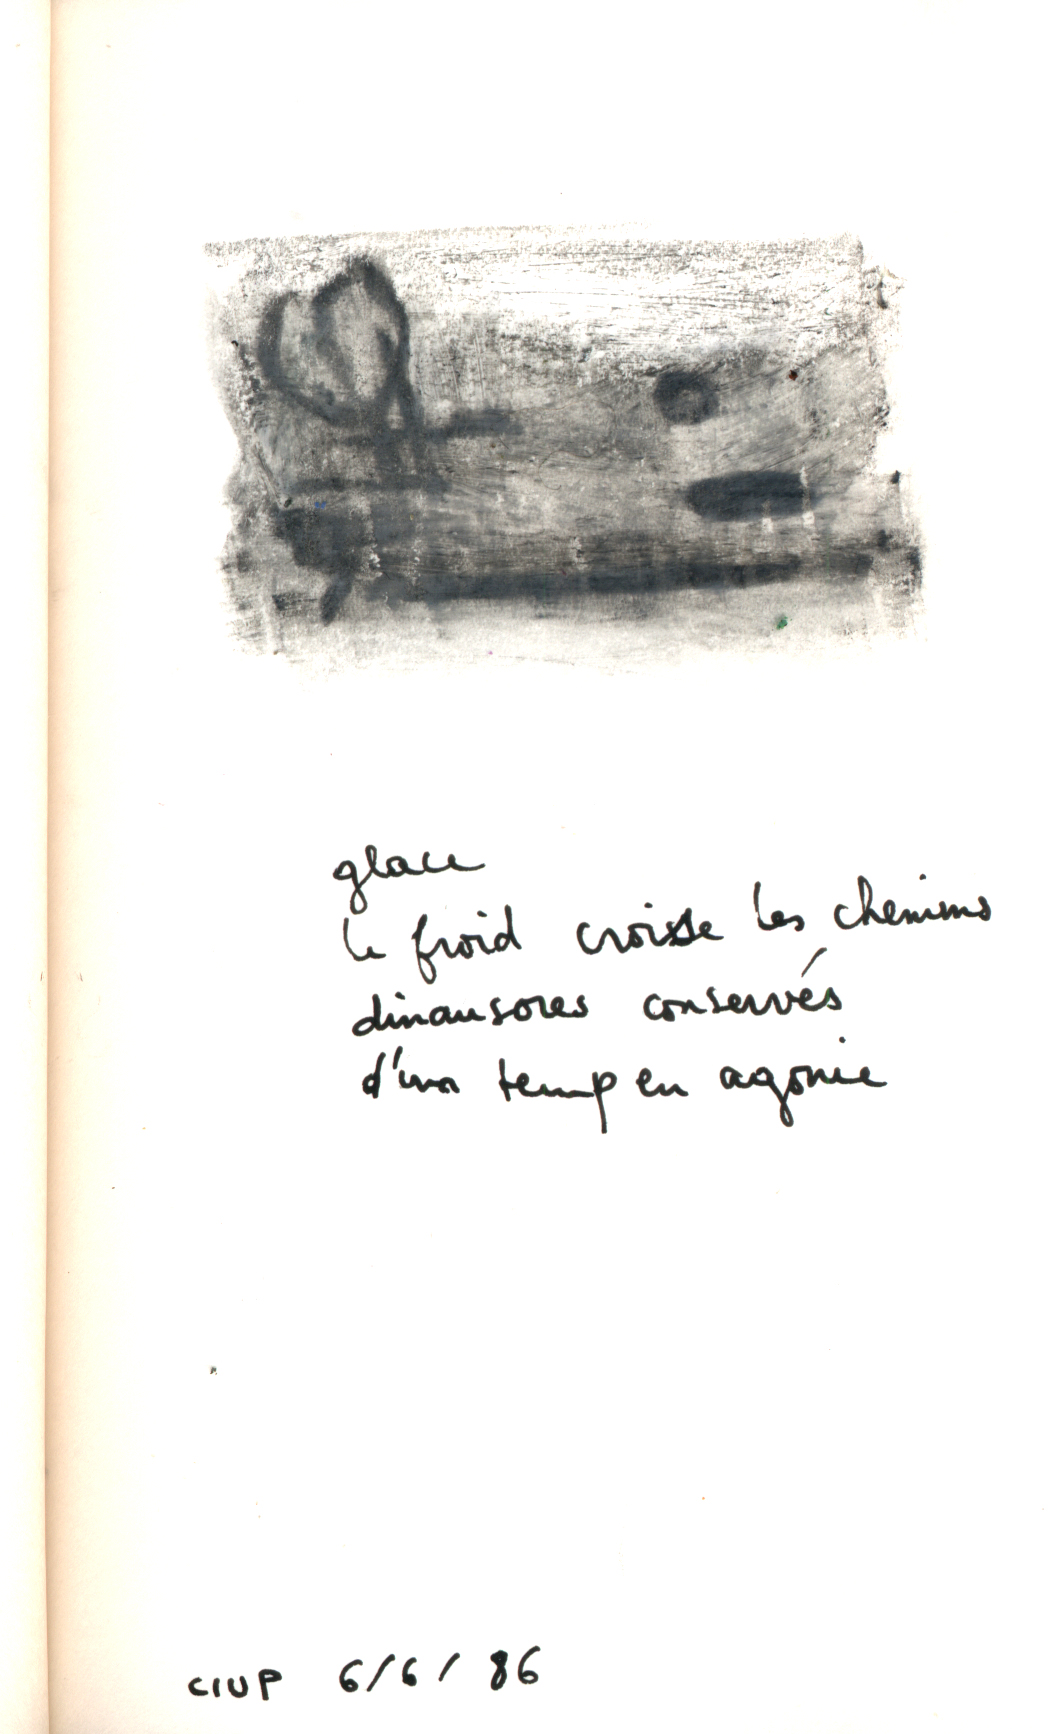 glace
le froid croisse les chemins
dinausores conservés
d'un temp en agonie
CIUP 6/6/86